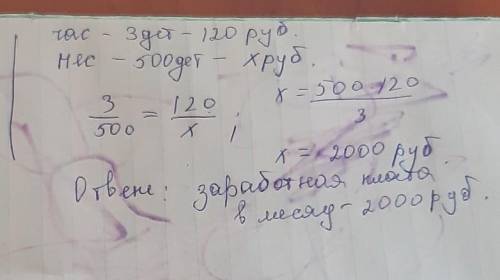 час - 3 дет - 120 руб.
мес - 500 дет - х руб.
3/500 = 120/х ; х = 500 120/3
х = 2000 руб.
Ответ: заработная плата
в месяц - 2000 руб.